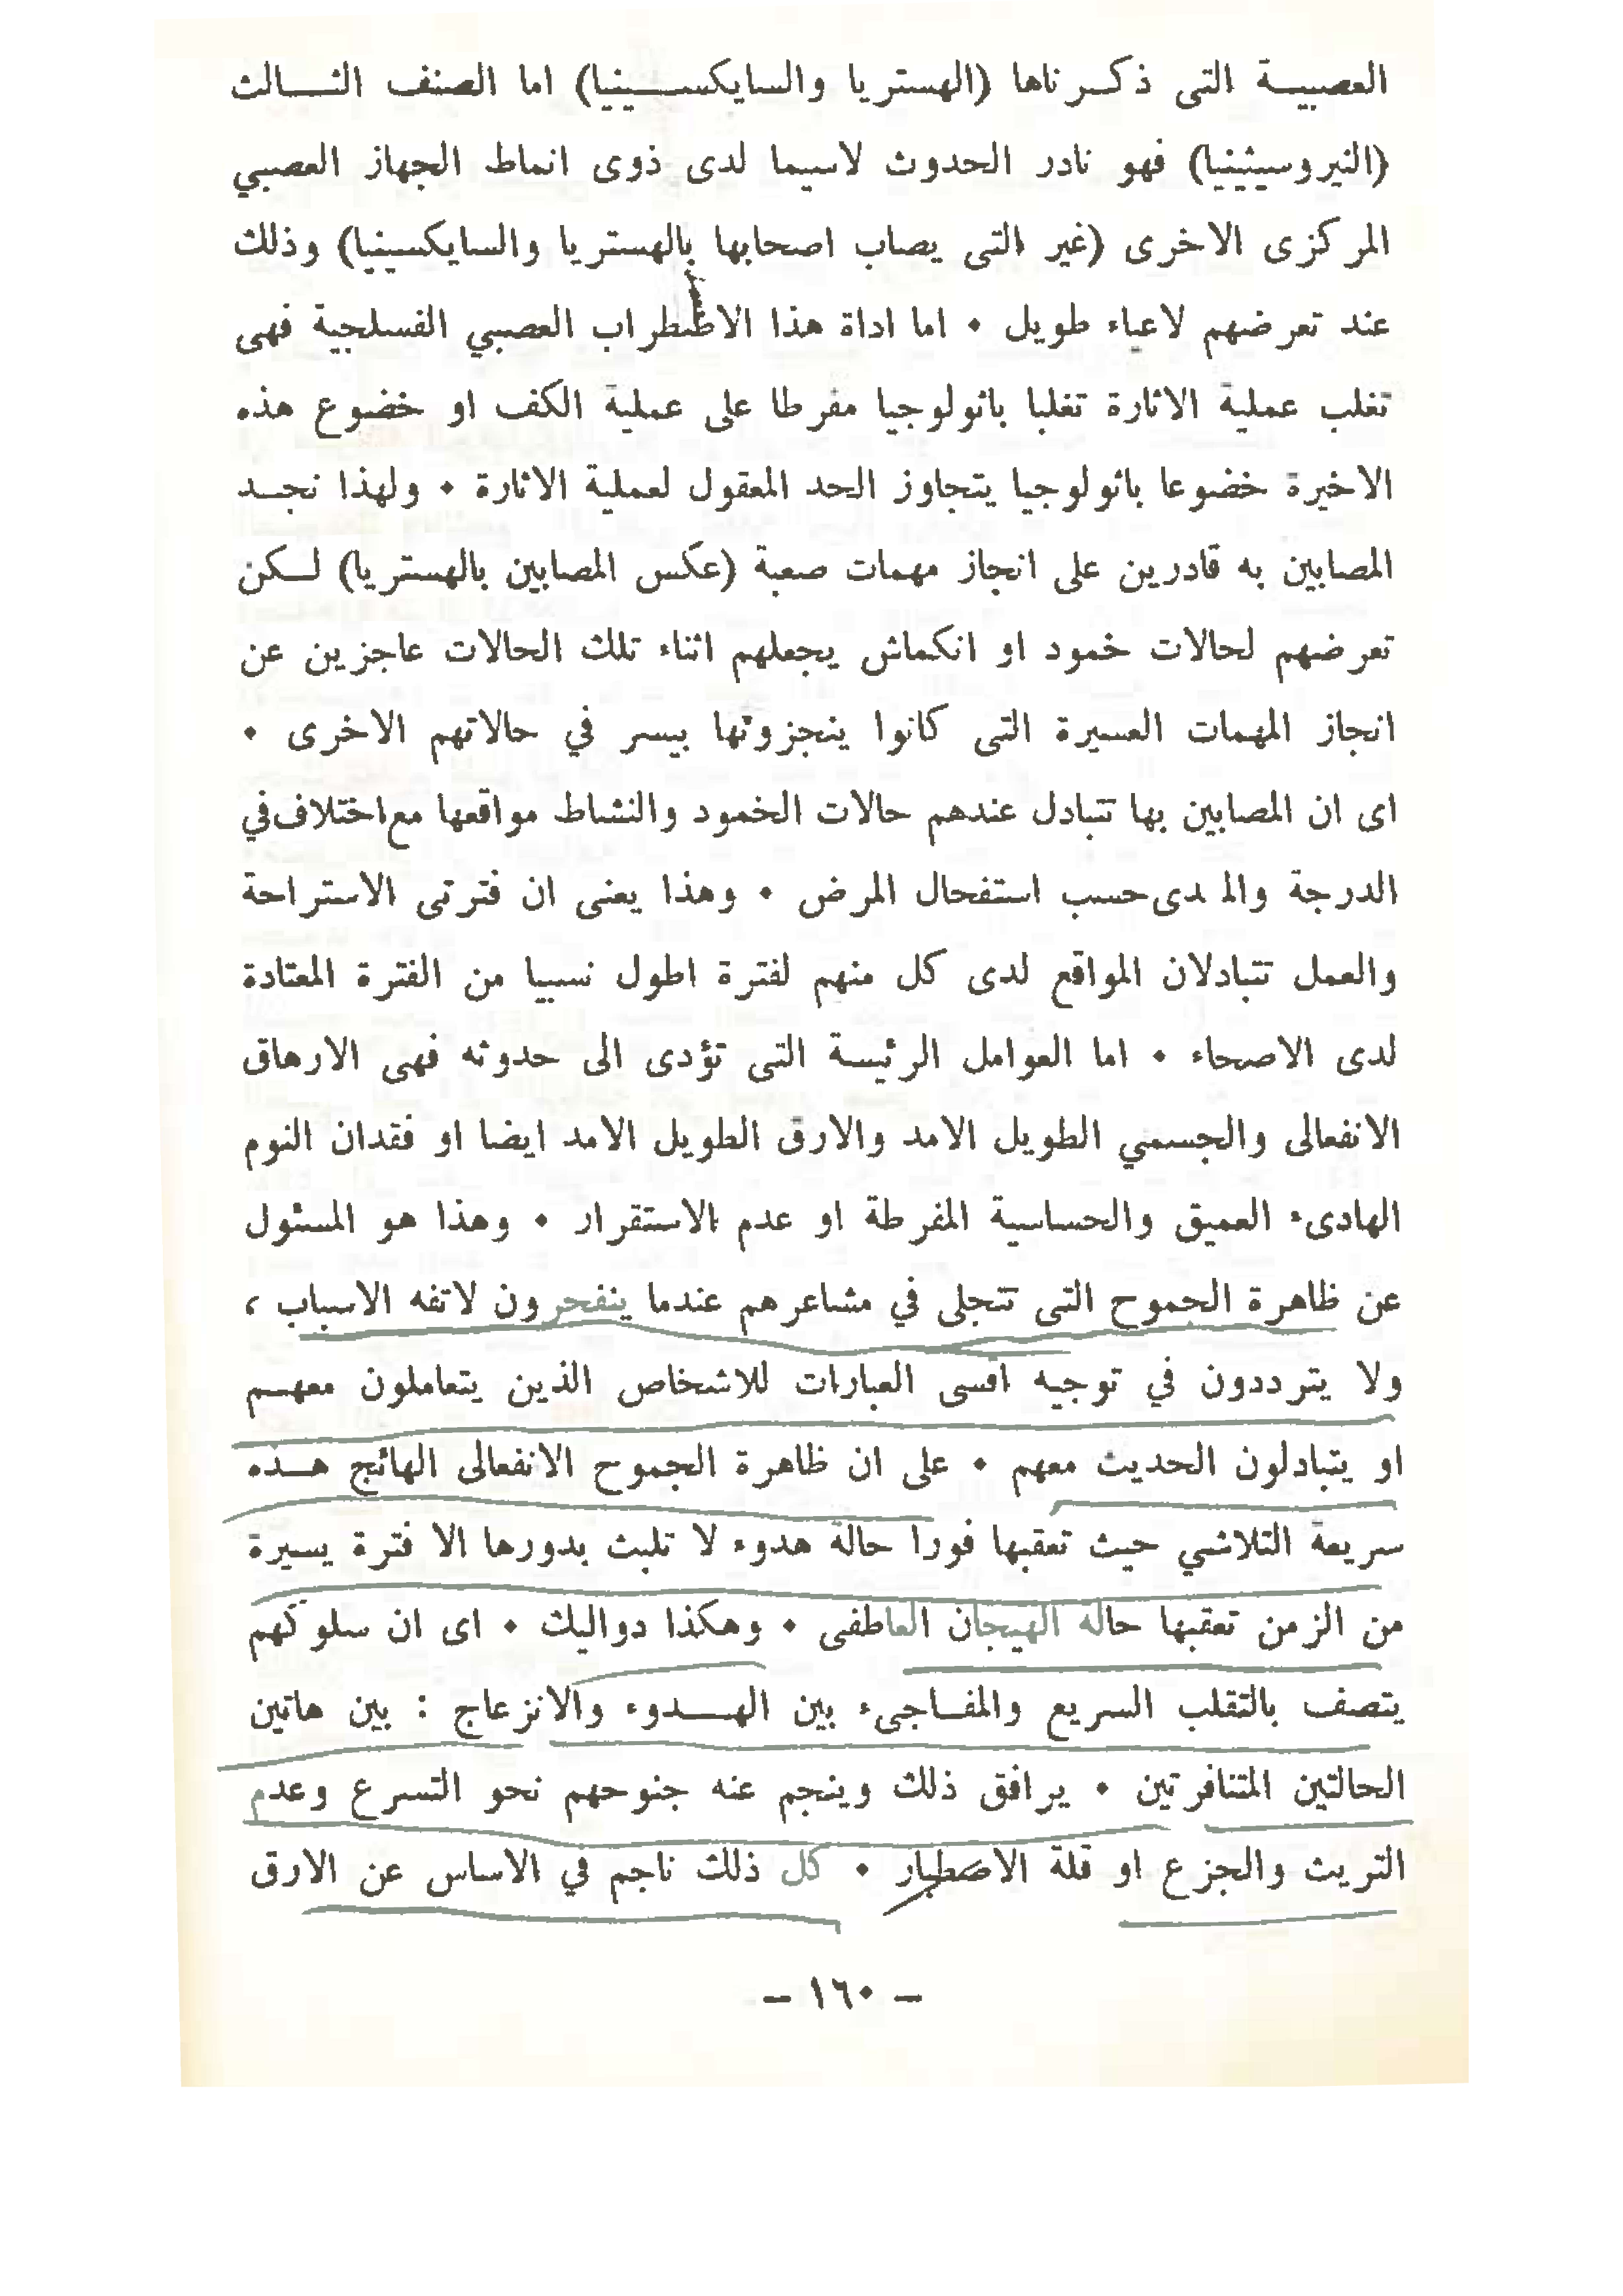 العصبيــة التى ذكــرناها (الهستريا والسايكســينيا) اما الصنف الثــالث
(النيروسيثينيا) فهو نادر الحدوث لاسيما لدى ذوى انماط الجهاز العصبي
المركزى الاخرى (غير التى يصاب اصحابها بالهستريا والسايكسينيا) وذلك
عند تعرضهم لاعياء طويل ٠ اما اداة هذا الاضطراب العصبي الفسلجية فهى
تغلب عملية الاثارة تغلبا باثولوجيا مفرطا على عملية الكف او خضوع هذه
الاخيرة خضوعا باثولوجيا يتجاوز الحد المعقول لعملية الاثارة ٠ ولهذا نجــد
المصابين به قادرين على انجاز مهمات صعبة (عكس المصابين بالهستريا) لــكن
تعرضهم لحالات خمود او انكماش يجعلهم اثناء تلك الحالات عاجزين عن
انجاز المهمات العسيرة التى كانوا ينجزونها بيسر في حالاتهم الاخرى ٠
اى ان المصابين بها تتبادل عندهم حالات الخمود والنشاط مواقعها مع اختلاف في
الدرجة والمدى حسب استفحال المرض ٠ وهذا يعنى ان فترتى الاستراحة
والعمل تتبادلان المواقع لدى كل منهم لفترة اطول نسبيا من الفترة المعتادة
لدى الاصحاء ٠ اما العوامل الرئيسة التى تؤدى الى حدوثه فهى الارهاق
الانفعالى والجسمي الطويل الامد والارق الطويل الامد ايضا او فقدان النوم
الهادىء العميق والحساسية المفرطة او عدم الاستقرار ٠ وهذا هو المسئول
عن ظاهرة الجموح التى تتجلى في مشاعرهم عندما ينفجرون لاتفه الاسباب ،
ولا يترددون في توجيه اقسى العبارات للاشخاص الذين يتعاملون معهــم
او يتبادلون الحديث معهم ٠ على ان ظاهرة الجموح الانفعالى الهائج هــذه
سريعة التلاشي حيث تعقبها فورا حالة هدوء لا تلبث بدورها الا فترة يسيرة
من الزمن تعقبها حالة الهيجان العاطفى ٠ وهكذا دواليك ٠ اى ان سلوكهم
يتصف بالتقلب السريع والمفــاجىء بين الهــدوء والانزعاج : بين هاتين
الحالتين المتنافرتين ٠ يرافق ذلك وينجم عنه جنوحهم نحو التسرع وعدم
التريث والجزع او قلة الاصطبار ٠ كل ذلك ناجم في الاساس عن الارق
– ١٦٠ –